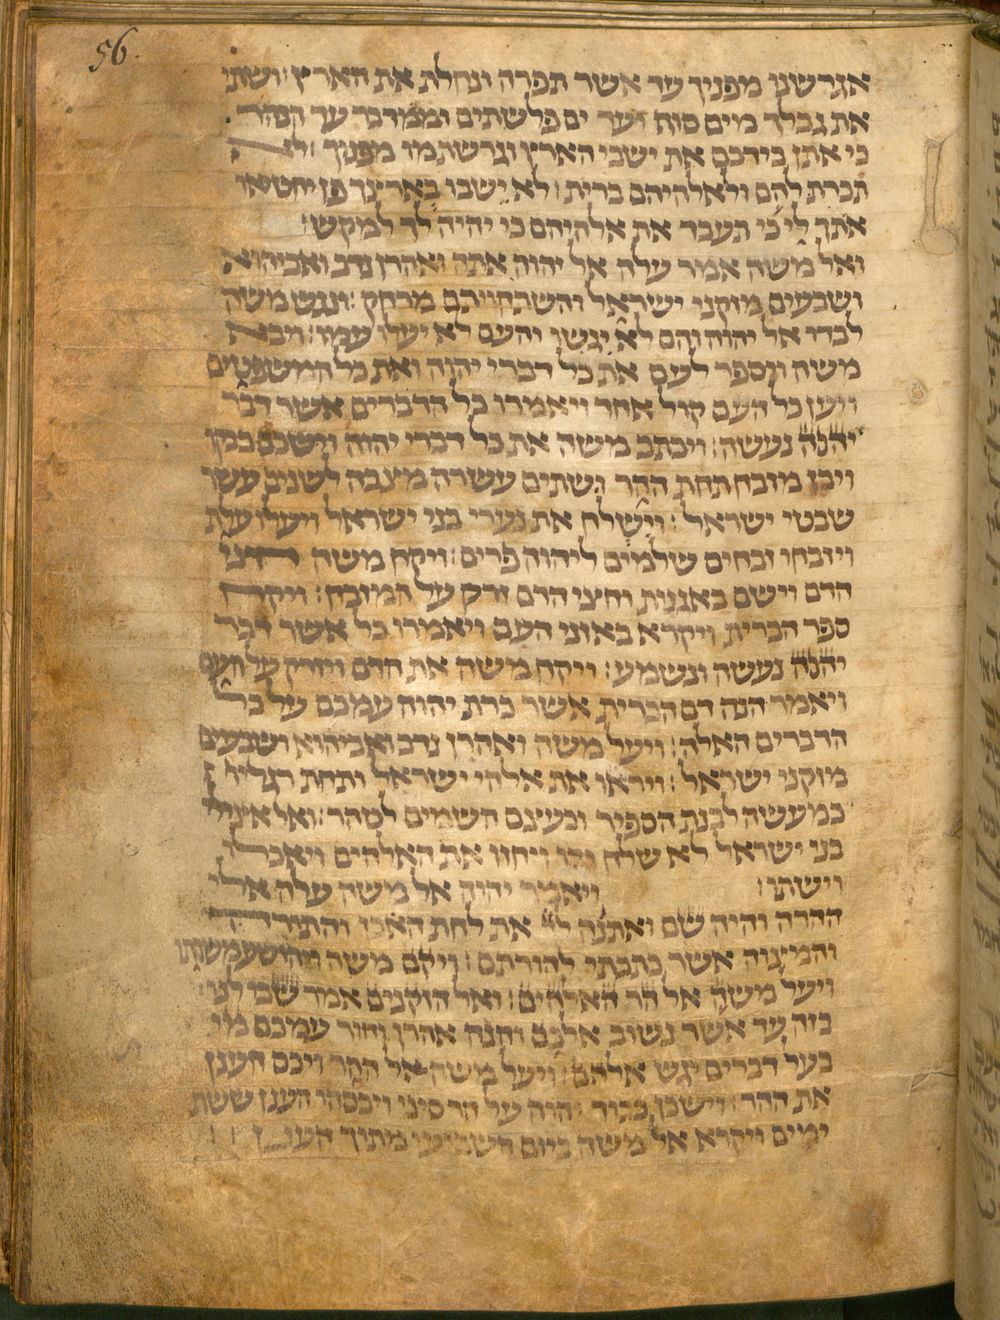 56.
אגרשנו מפניך עד אשר תפרה ונחלת את הארץ׃ ושתי
את גבלך מים סוף ועד ים פלשתים וממדבר עד הנהר
כי אתן בידכם את ישבי הארץ וגרשתמו מפניך׃ לא
תכרת להם ולאלהיהם ברית׃ לא ישבו בארצך פן יחטיאו
אתך לי כי תעבד את אלהיהם כי יהיה לך למקש׃
ואל משה אמר עלה אל יהוה אתה ואהרן נדב ואביהוא
ושבעים מזקני ישראל והשתחויתם מרחק׃ ונגש משה
לבדו אל יהוה והם לא יגשו והעם לא יעלו עמו׃ ויבא
משה ויספר לעם את כל דברי יהוה ואת כל המשפטים
ויען כל העם קול אחד ויאמרו כל הדברים אשר דבר
יהוה נעשה׃ ויכתב משה את כל דברי יהוה וישכם בבקר
ויבן מזבח תחת ההר ושתים עשרה מצבה לשנים עשר
שבטי ישראל׃ וישלח את נערי בני ישראל ויעלו עלת
ויזבחו זבחים שלמים ליהוה פרים׃ ויקח משה חצי
הדם וישם באגנות וחצי הדם זרק על המזבח׃ ויקח
ספר הברית ויקרא באזני העם ויאמרו כל אשר דבר
יהוה נעשה ונשמע׃ ויקח משה את הדם ויזרק על העם
ויאמר הנה דם הברית אשר כרת יהוה עמכם על כל
הדברים האלה׃ ויעל משה ואהרן נדב ואביהוא ושבעים
מזקני ישראל׃ ויראו את אלהי ישראל ותחת רגליו
כמעשה לבנת הספיר וכעצם השמים לטהר׃ ואל אצילי
בני ישראל לא שלח ידו ויחזו את האלהים ויאכלו
וישתו׃ ויאמר יהוה אל משה עלה אלי
ההרה והיה שם ואתנה לך את לחת האבן והתורה
והמצוה אשר כתבתי להורתם׃ ויקם משה ויהושע משרתו
ויעל משה אל הר האלהים׃ ואל הזקנים אמר שבו לנו
בזה עד אשר נשוב אליכם והנה אהרן וחור עמכם מי
בעל דברים יגש אלהם׃ ויעל משה אל ההר ויכס הענן
את ההר׃ וישכן כבוד יהוה על הר סיני ויכסהו הענן ששת
ימים ויקרא אל משה ביום השביעי מתוך הענן